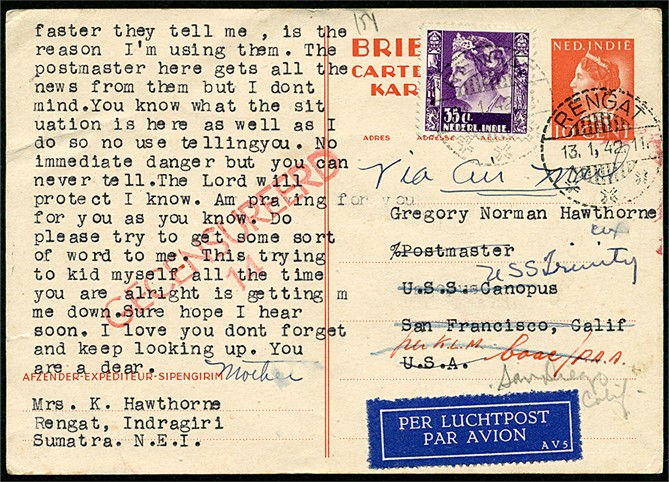 faster they tell me , is the
reason I'm using them. The
postmaster here gets all the
news from them but I dont
mind.You know what the sit
uation is here as well as I
do so no use tellingyou. No
immediate danger but you can
never tell.The Lord will
protect I know. Am praking for you
for you as you know. Do
please try to get some sort
of word to me. This trying
to kid myself all the time
you are alright is getting m
me down.Sure hope I hear
soon. I love you dont forget
and keep looking up. You
are a dear. Mother
GECENSUREERD
14
AFZENDER-EXPEDITEUR-SIPENGIRIM
Mrs. K. Hawthorne
Rengat, Indragiri
Sumatra. N.E.I.
BRIE
CARTE
KAR
ADRES
35 c.
NEDERL. INDIE
NED. INDIË
10
RENGAT
13. 1, 42. 11
Via Air Mail
Gregory Norman Hawthorne
%Postmaster
USS Trinity
U.S.S. Canopus
San Francisco, Calif
per K.L.M.
U.S.A.
San Diego
Calif.
PER LUCHTPOST
PAR AVION
AV5